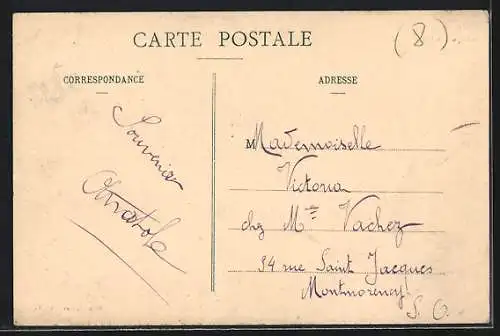 CARTE POSTALE
(8)
CORRESPONDANCE
ADRESSE
Souvenir
Mademoiselle
Victoria
chz Mme Vachez
34 rue Saint Jacques
Montmorency
S. O.